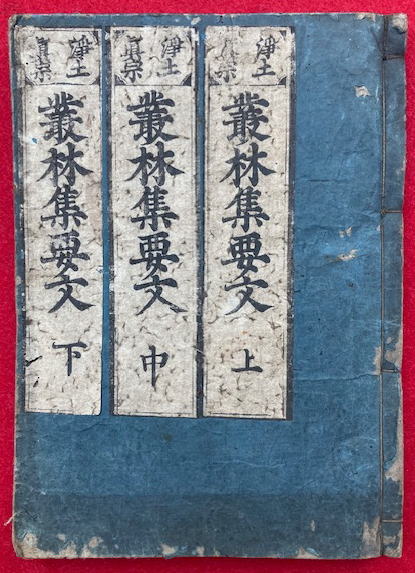 浄土
真宗
叢林集要文
上
浄土
真宗
叢林集要文
中
浄土
真宗
叢林集要文
下